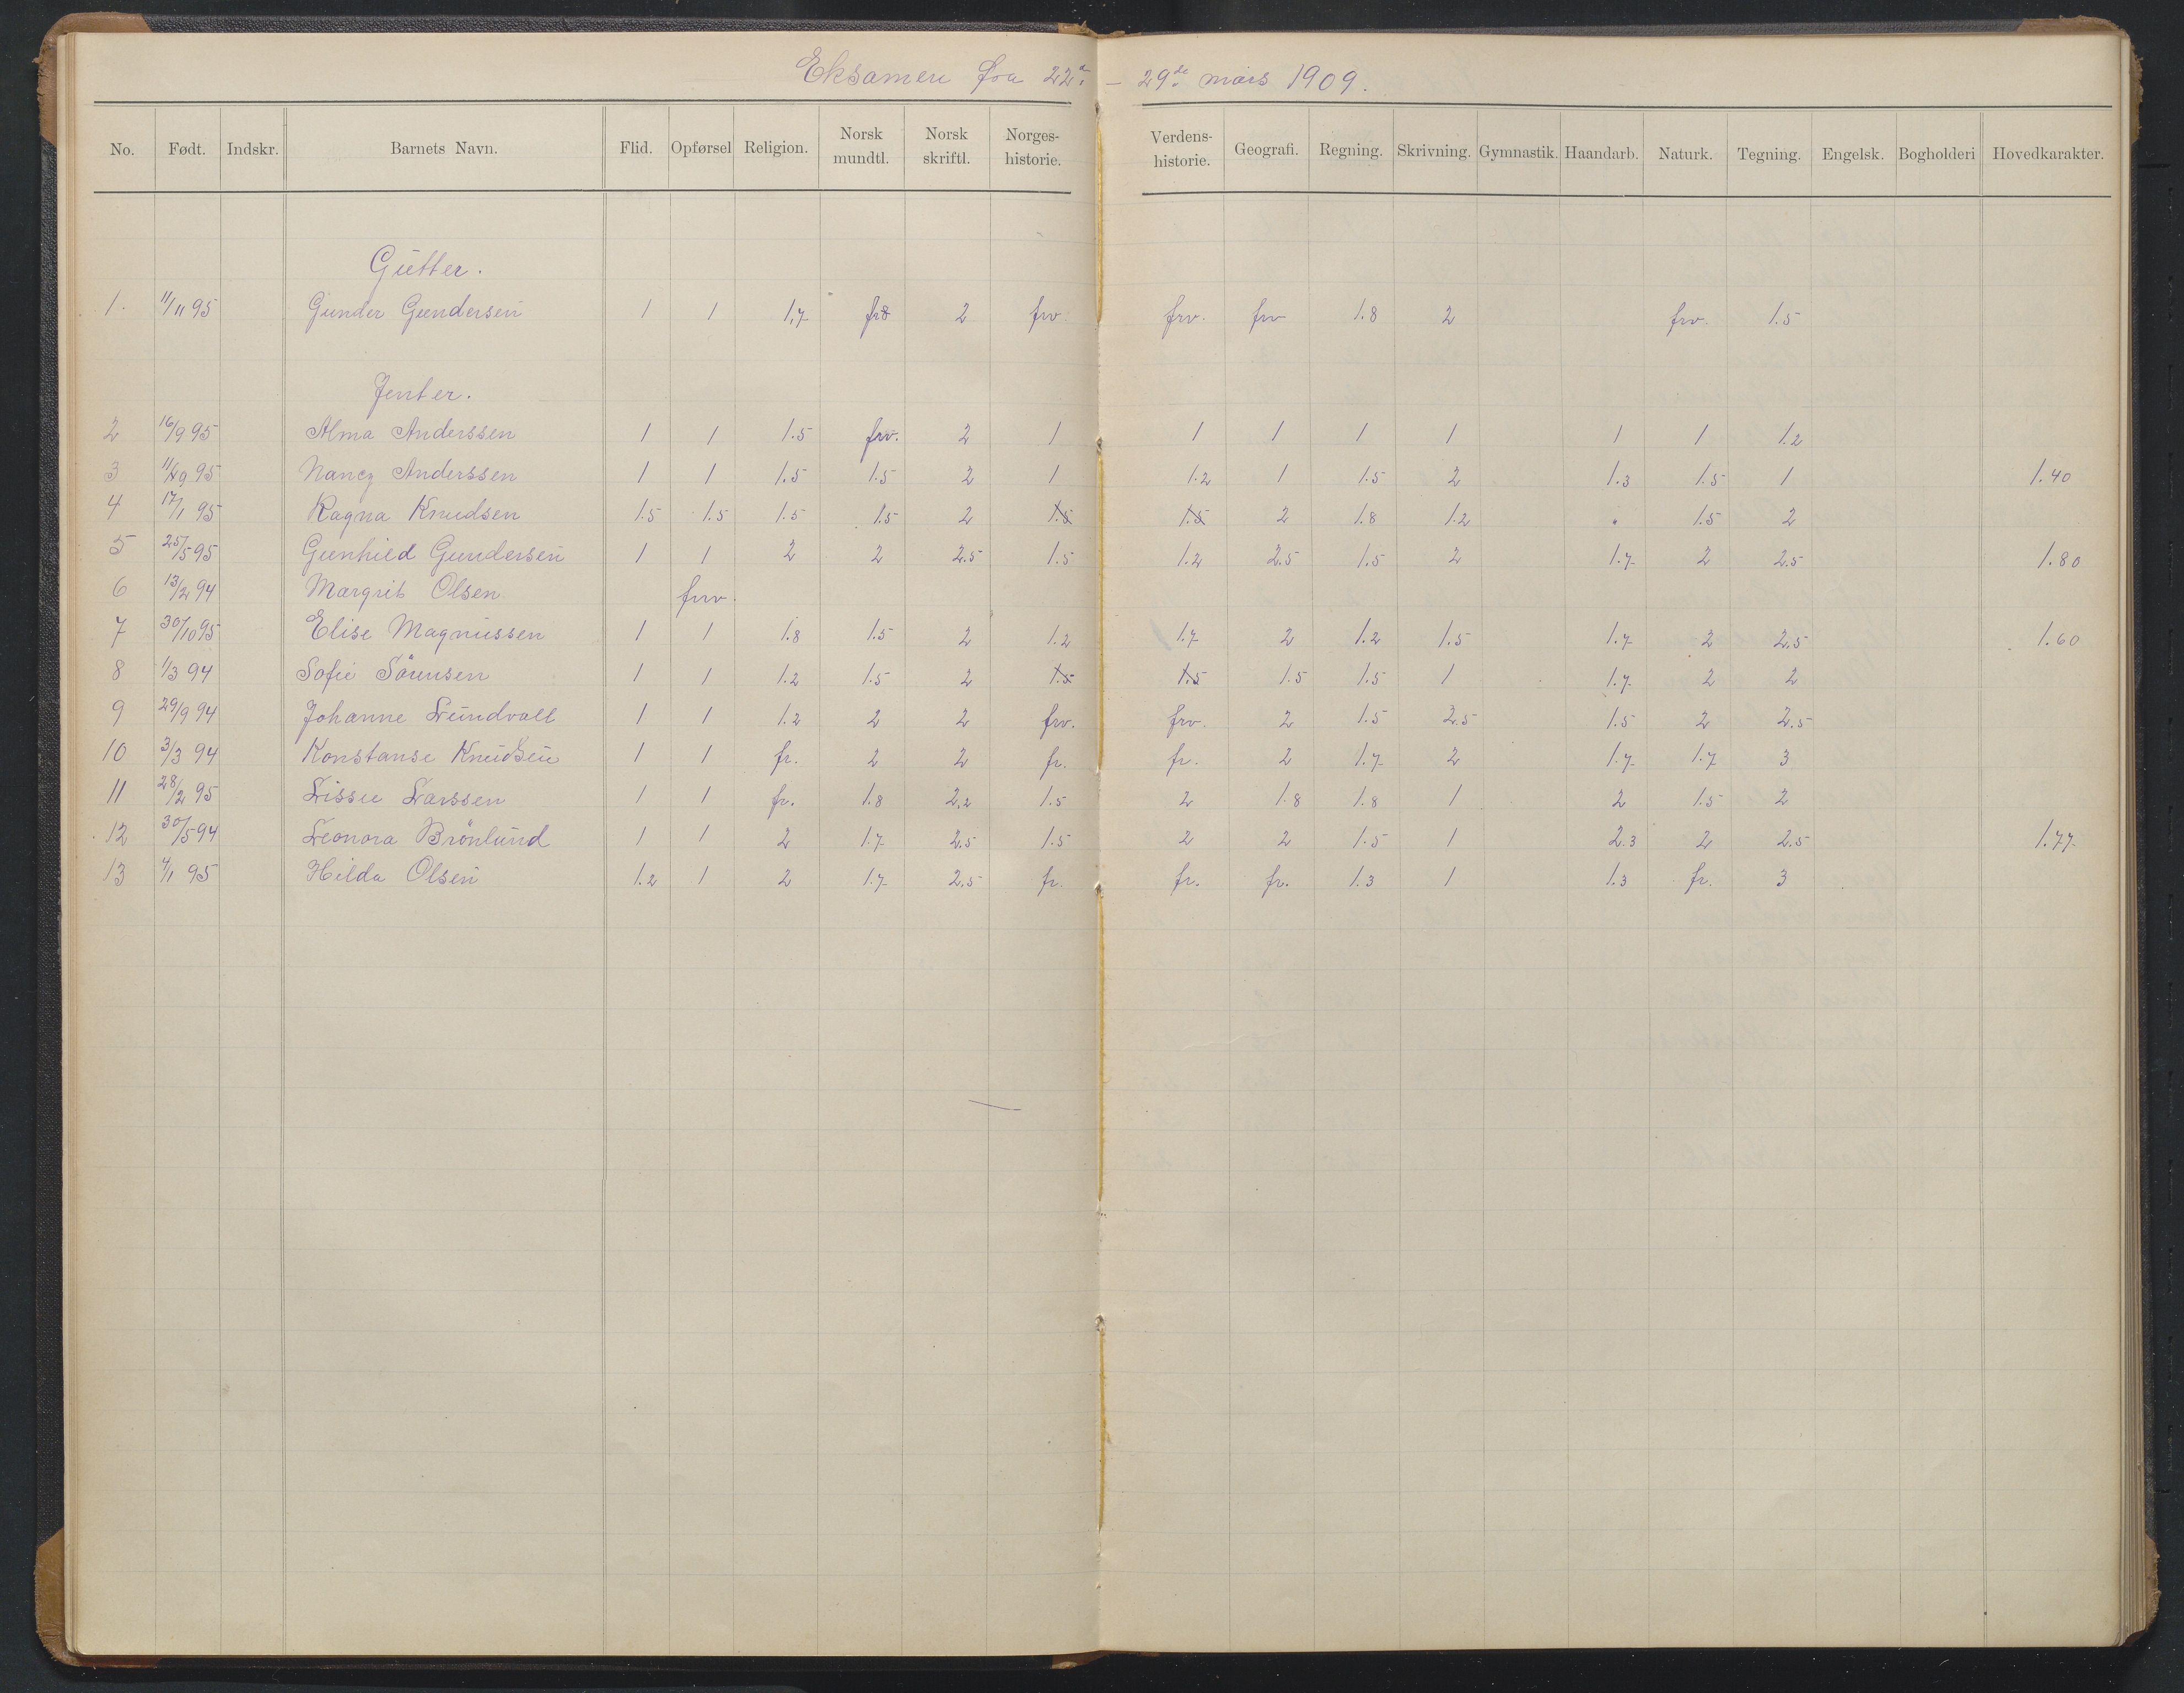 Eksamen fra 22de – 29de mars 1909.
No. Født. Indskr. Barnets Navn. Flid. Opførsel Religion. Norsk mundtl. Norsk skriftl. Norges- historie. Verdens- historie. Geografi. Regning. Skrivning. Gymnastik. Haandarb. Naturk. Tegning. Engelsk. Bogholderi Hovedkarakter.
Gutter.
1. 11/11 95 Gunder Gundersen 1 1 1,7 2 frv. frv. frv 1.8 2 frv. 1.5
Jenter.
2 16/9 95 Alma Anderssen 1 1 1.5 frv. 2 1 1 1 1 1 1 1 1.2
3 95 Nancy Anderssen 1 1 1.5 1.5 2 1 1.2 1 1.5 2 1.3 1.5 1 1.40
4 17/1 95 Ragna Knudsen 1.5 1.5 1.5 1.5 2 1.5 1.5 2 1.8 1.2 1.5 2
5 25/5 95 Gunhild Gundersen 1 1 2 2 2.5 1.5 1.2 2.5 1.5 2 1.7 2 2.5 1.80
6 13/2 94 Margrit Olsen frv.
7 30/10 95 Elise Magnussen 1 1 1.8 1.5 2 1.2 1.7 2 1.2 1.5 1.7 2 2.5 1.60
8 1/3 94 Sofie Sörensen 1 1 1.2 1.5 2 1.5 1.5 1.5 1.5 1 1.7 2 2
9 29/9 94 Johanne Lundvall 1 1 1.2 2 2 frv. frv. 2 1.5 2.5 1.5 2 2.5
10 3/3 94 Konstanse Knudsen 1 1 fr. 2 2 fr. fr. 2 1.7 2 1.7 1.7 3
11 28/2 95 Lissie Larssen 1 1 fr. 1.8 2.2 1.5 2 1.8 1.8 1 2 1.5 2
12 30/5 94 Leonora Brönlund 1 1 2 1.7 2.5 1.5 2 2 1.5 1 2.3 2 2.5 1.77
13 4/1 95 Hilda Olsen 1.2 1 2 1.7 2.5 fr. fr. fr. 1.3 1 1.3 fr. 3